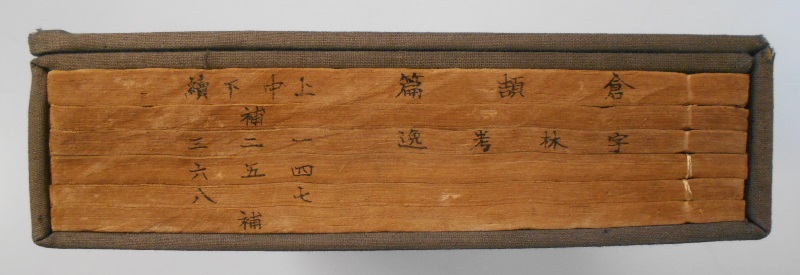 倉頡篇 上中下續
補
字林考逸 一二三
四五六
七八
補